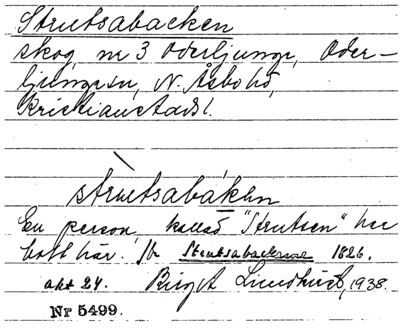 Strutsabacken
skog, nr 3 Oderljunga, Oder-
ljunga sn, N. Åsbo hd,
Kristianstads l.
strutsabakən
En person, kallad "Strutsen" har
bott här. Jfr Strutsabackarne 1826,
akt 24. Birgit Lundkvist, 1938.
Nr 5499.